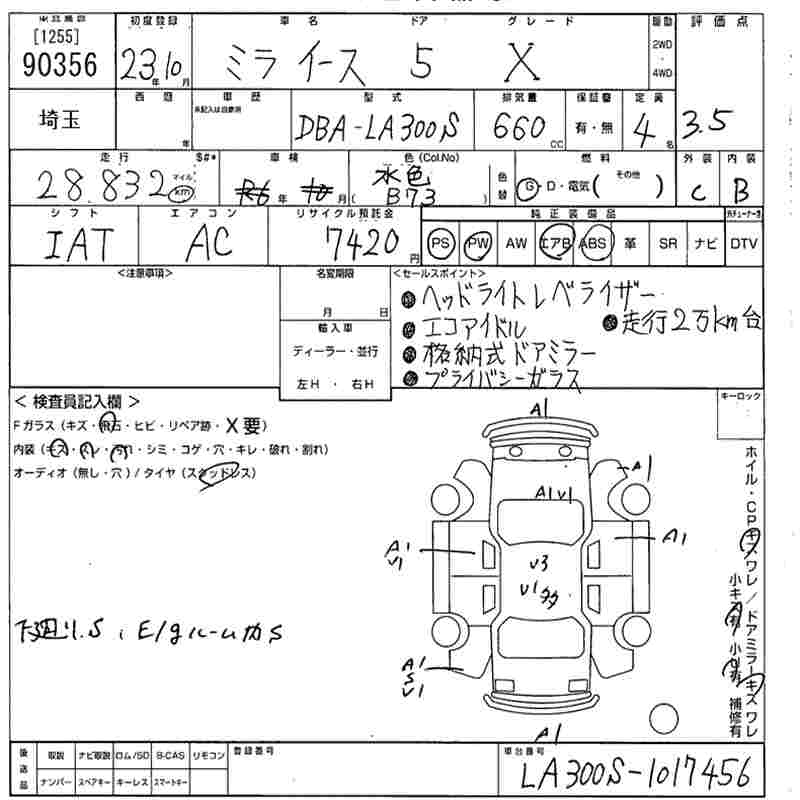 [1255]
90356
初度登録
23年10月
車名
ミライース
ドア
5
グレード
X
駆動
2WD
4WD
評価点
3.5
埼玉
西暦
年
車歴
未記入は自家用
型式
DBA-LA300S
排気量
660cc
保証書
有・無
定員
4名
走行
28.832
マイル
km
$#*
車検
R6年 10月
色(Col.No)
水色
(B73)
色替
燃料
G・D・電気( その他 )
外装
C
内装
B
シフト
IAT
エアコン
AC
リサイクル預託金
7420円
純正装備品
PS PW AW エアB ABS 革 SR ナビ DTV
<注意事項>
名変期限
月 日
輸入車
ディーラー・並行
左H・右H
<セールスポイント>
●ヘッドライトレベライザー
●エコアイドル
●走行2万km台
●格納式ドアミラー
●プライバシーガラス
<検査員記入欄>
Fガラス(キズ・飛石・ヒビ・リペア跡・X要)
内装(キズ・スレ・汚れ・シミ・コゲ・穴・キレ・破れ・割れ)
オーディオ(無し・穴)/タイヤ(スタッドレス)
キーロック
A1
A1
A1V1
A1
V1
A1
V3
V1多
A1
S
V1
A1
下廻り.S、E/gルームカS
ホイル・CPキズワレ/ドアミラーキズワレ
小キズ有 小凹有 補修有
後送品
取説 ナビ取説 ロム/SD B-CAS リモコン
ナンバー スペアキー キーレス スマートキー
登録番号
車台番号
LA300S-1017456